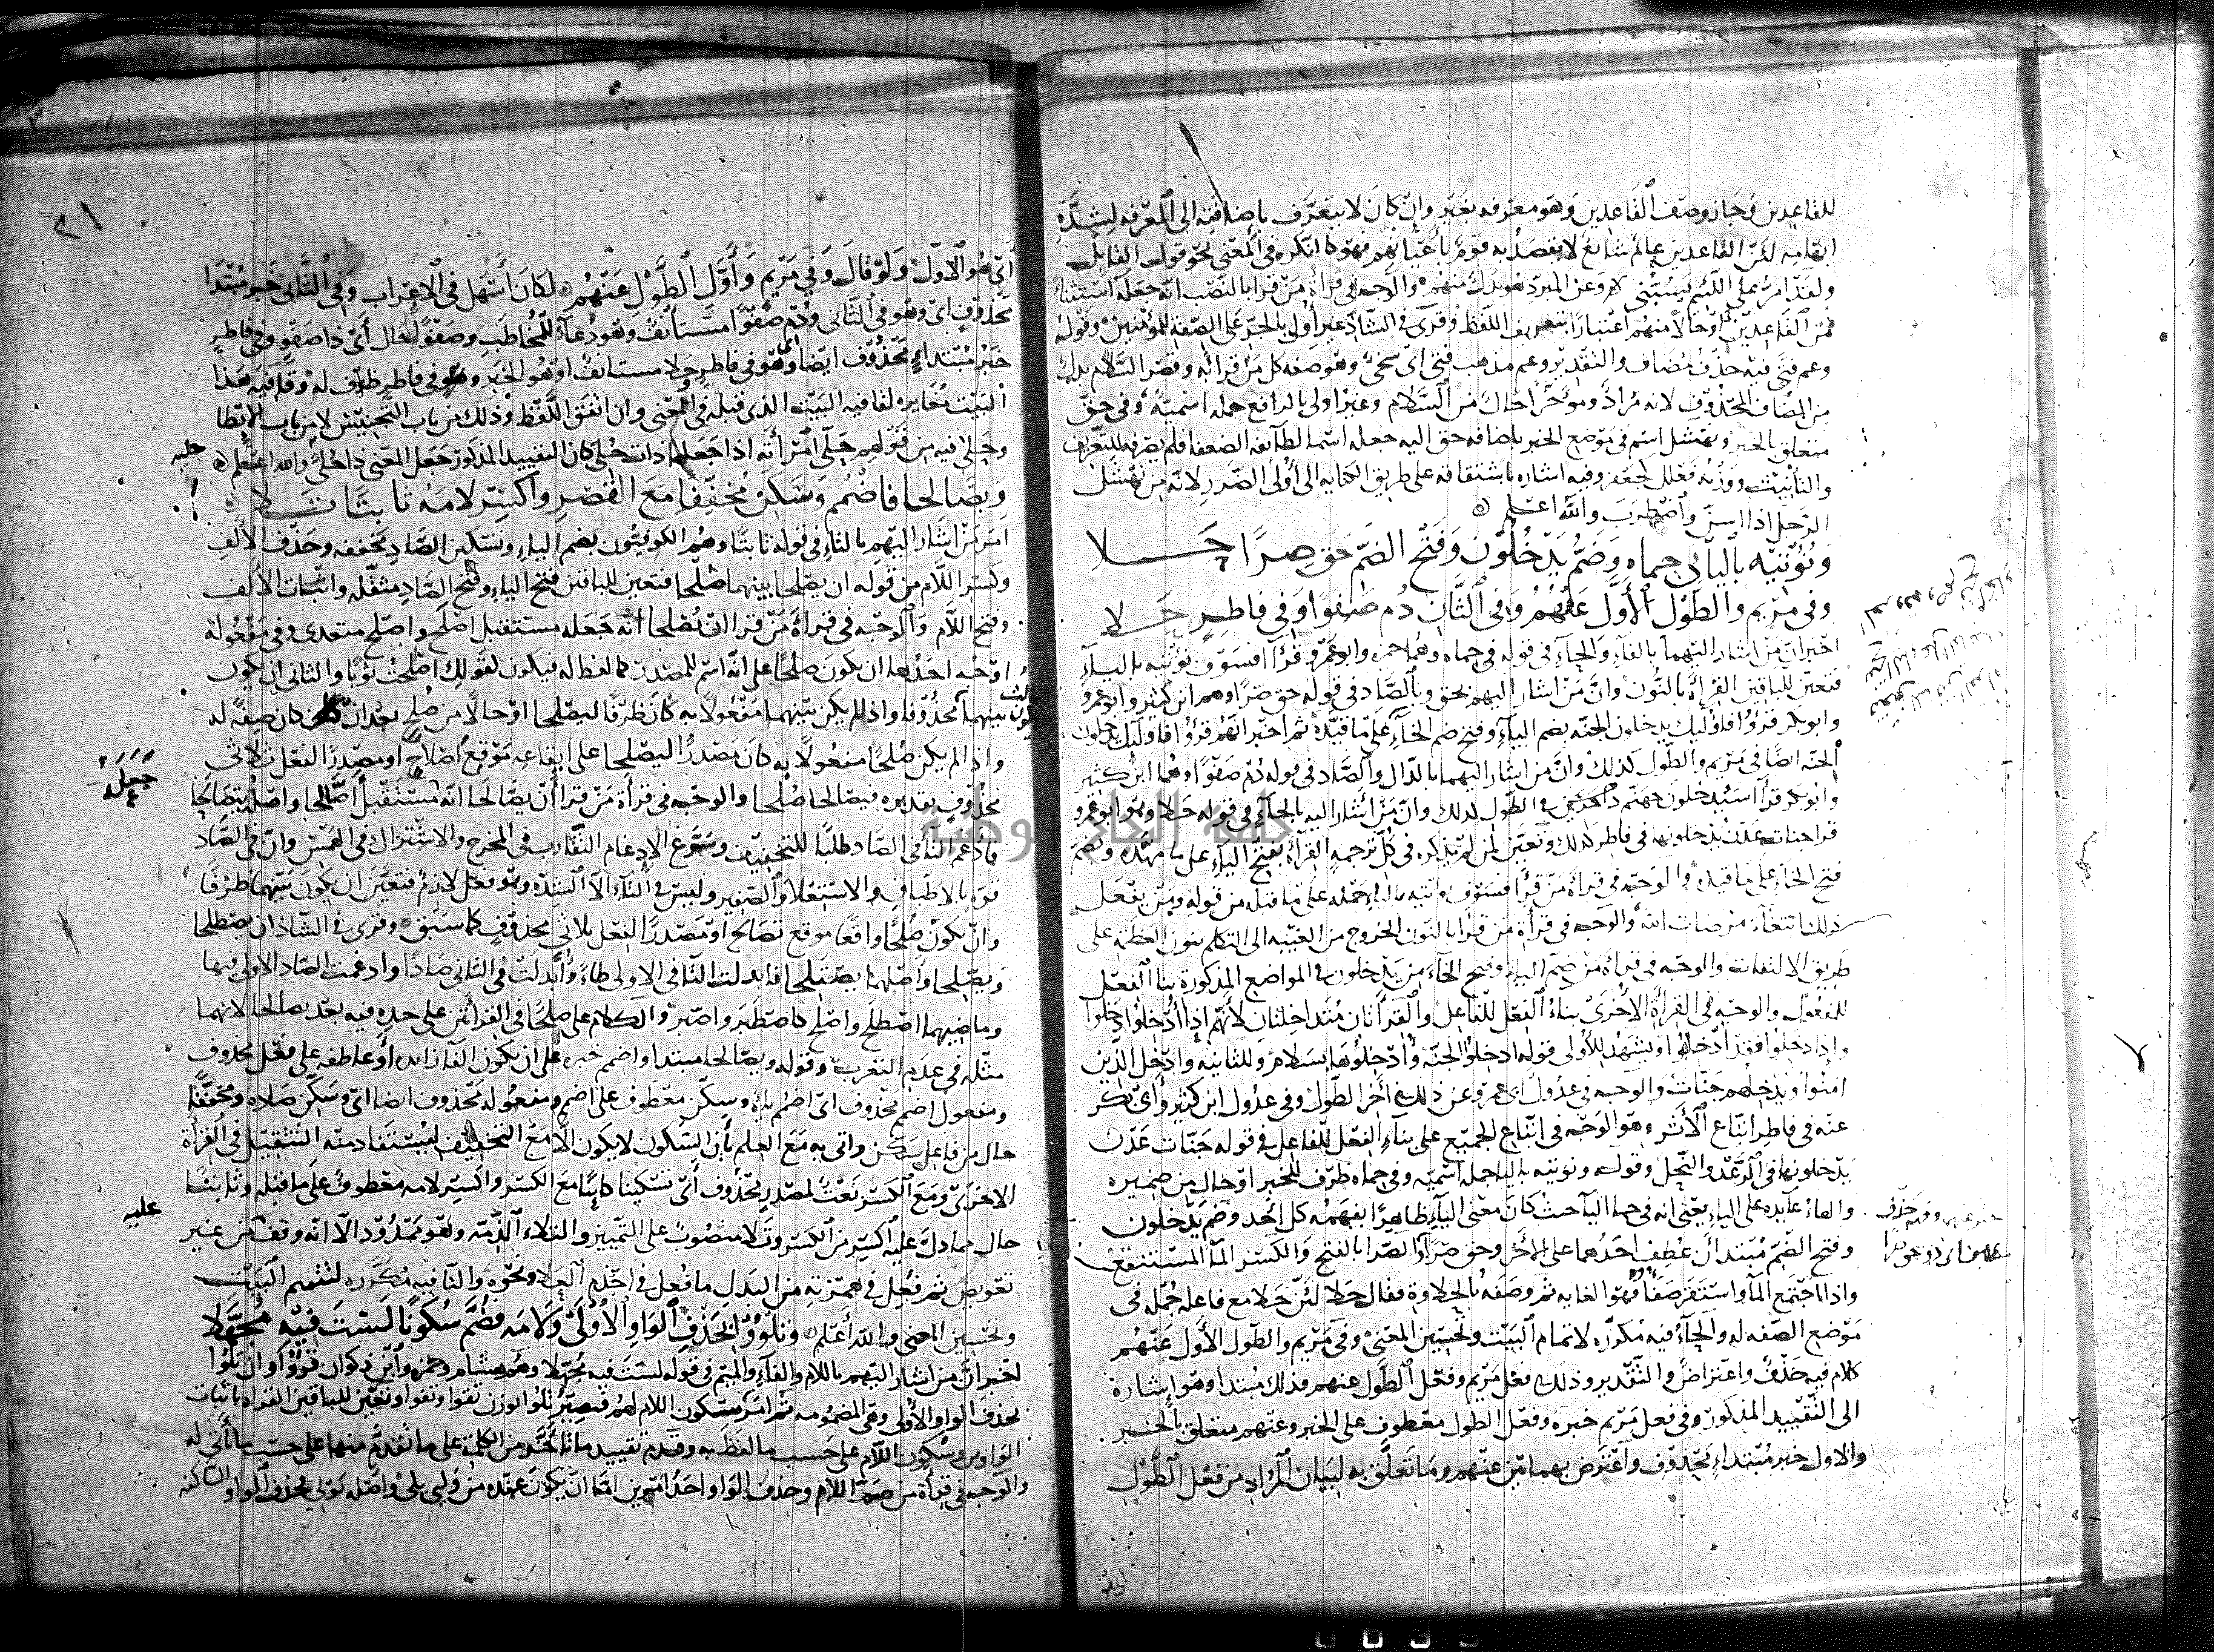 للقاعدين وجاز وصف القاعدين وهو معرفه بغير وان كان لا يتعرف باضافته الى المعرفه لشدة
ابهامه لان القاعدين عام شائع لا يقصد به قوم باعيانهم فهو كالنكره في المعنى نحو قول القايل
ولقد امر على اللئيم يسبني وعن المبرد هو بدل منهم والوجه في قراة من قرا بالنصب انه جعله استثناء
من القاعدين او حالا منهم وقرئ في الشاذ غير اولي بالجر على الصفه للمؤمنين وقوله
وعم فتى فيه حذف مضاف والتقدير وعم مذهب فتى اى سخى وهو صفه كل من قرا به وقصر السلام بدل
من المضاف المحذوف لانه مراد وموخرا حال من السلام وغير اولى بالرفع جمله اسميه وفي حق
متعلق بالخبر ونهشل اسم في موضع الخبر باضافه حق اليه جعله اسما لطائفه الضعفه فلم يصرفه للتعريف
والتأنيث ووزنه فعلل كجعفر وفيه اشاره باشتقاقه على طريق الكنايه الى اولى الضرر لانه من نهشل
الرجل اذا اسن واضطرب والله اعلم
ونؤتيه باليا في حماه وضم يدخلون وفتح الضم حق صرا حلا
وفي مريم والطول الاول عنهم وفي الثان دم صفوا وفي فاطر حلا
اخبر ان من اشار اليهما بالفاء والحاء في قوله في حماه وهما حمزه وابو عمرو قرآ فسوف نؤتيه بالياء
فتعين للباقين القراة بالنون وان من اشار اليهم بحق وبالصاد في قوله حق صرا وهم ابن كثير وابو عمرو
وابو بكر قرؤا فاولئك يدخلون الجنه بضم الياء وفتح ضم الخاء على ما قيده ثم اخبر انهم قرؤا فاولئك يدخلون
الجنه ايضا في مريم والطول كذلك وان من اشار اليهما بالدال والصاد في قوله دم صفوا وهما ابن كثير
وابو بكر قرآ سيدخلون جهنم داخرين في الطول كذلك وان من اشار اليه بالحاء في قوله حلا وهو ابو عمرو
قرا جنات عدن يدخلونها في فاطر كذلك وتعين لمن لم يذكره في كل ترجمه القراة بفتح الياء على ما مهده وبضم
فتح الخاء على ما قيده والوجه في قراة من قرا فسوف يؤتيه بالياء حمله على ما قبله من قوله ومن يفعل
ذلك ابتغاء مرضات الله والوجه في قراة من قرا بالنون الخروج من الغيبه الى التكلم بنون العظمه على
طريق الالتفات والوجه في قراة من ضم الياء وفتح الخاء من يدخلون في المواضع المذكورة بنا الفعل
للمفعول والوجه في القراة الاخرى بناء الفعل للفاعل والقراتان متداخلتان لانهم اذا ادخلوا دخلوا
واذا دخلوا فقد ادخلوا ويشهد للاولى قوله ادخلوا الجنة وادخلوها بسلام وللثانيه وادخل الذين
امنوا ويدخلهم جنات والوجه في عدول ابى عمرو عن ذلك في أخر الطول وفي عدول ابن كثير وأبى بكر
عنه في فاطر اتباع الأثر وهو الوجه في اتباع الجميع على بناء الفعل للفاعل في قوله جنات عدن
يدخلونها في الرعد والنحل وقوله ونؤتيه باليا جمله اسميه وفي حماه ظرف للخبر او حال من ضميره
والهاء عايده على الياء يعنى انه في حما الياء حيث كان معنى الياء ظاهرا يفهمه كل احد وضم يدخلون
وفتح الضم مبتدان عطف احدهما على الاخر وحق صرا والصرا بالفتح والكسر الماء المستنقع
واذا اجتمع الماء واستنقع صفا فهو الغايه ثم وصفه بالحلاوة فقال حلا لئن حلا مع فاعله جمله في
موضع الصفه له والحاء فيه مكرره لاتمام البيت وتحسين المعنى وفي مريم والطول الاول عنهم
كلام فيه حذف واعتراض والتقدير وذلك فعل مريم وفعل الطول عنهم فذلك مبتدا وهو اشارة
الى التقييد المذكور وفي فعل مريم خبره وفعل الطول معطوف على الخبر وعنهم متعلق بالخبر
والاول خبر مبتداء محذوف واعترض بهما بين عنهم وما تعلق به لبيان المراد من فعل الطول
اى هو الاول ولو قال وفي مريم وأول الطول عنهم لكان أسهل في الاعراب وفي الثاني خبر مبتدا
محذوف اى وهو في الثاني ودم صفوا مستأنف وهو دعاء للمخاطب وصفوا حال أى ذا صفو وفي فاطر
خبر مبتداء محذوف ايضا اى وهو في فاطر وحلا مستانف او هو الخبر وفي فاطر ظرف له وقافيه هذا
البيت مغايره لقافيه البيت الذى قبله في المعنى وان اتفق اللفظ وذلك من باب التجنيس لا من باب الايطا
وحلى فيه من قولهم حلى امرأته اذا جعلها ذات حلى كان التقييد المذكور جعل المعنى ذا حلى والله اعلم
ويصالحا فاضمم وسكن مخففا مع القصر واكسر لامه ثابتا تلا
امر من اشار اليهم بالثاء في قوله ثابتا وهم الكوفيون بضم الياء وتسكين الصاد مخففه وحذف الالف
وكسر اللام من قوله ان يصلحا بينهما صلحا فتعين للباقين فتح الياء وفتح الصاد مثقله واثبات الالف
وفتح اللام والوجه في قراة من قرا ان يصلحا انه جعله مستقبل اصلح واصلح متعدى وفي مفعوله
اوجه احدها ان يكون صلحا على انه اسم للمصدر كما لفظ له فيكون كقولك اصلحت ثوبا والثاني ان يكون
بينهما محذوفا واذ لم يكن بينهما مفعولا به كان ظرفا ليصلحا او حالا من صلح بعد ان كان صفة له
واذا لم يكن صلحا مفعولا به كان مصدرا ليصلحا على ايقاعه موقع اصلاح او مصدرا لفعل ثلاثى
محذوف تقديره فيصلحا صلحا والوجه في قرأة من قرا أن يصالحا انه مستقبل اصالحا واصله يتصالحا
فادغم التا في الصاد طلبا للتخفيف وسوغ الادغام التقارب في المخرج والاشتراك في الهمس وان في الصاد
قوه بالاطباق والاستعلا والصفير وليس في التاء الا الشده وهو فعل لازم فتعين ان يكون بينهما ظرفا
وان يكون صلحا واقعا موقع تصالح او مصدرا لفعل ثلاثي محذوف كما سبق وقرى في الشاذ ان يصطلحا
ويصلحا واصلهما يصتلحا فابدلت التا في الاولى طاء وأبدلت في الثاني صادا وادغمت الصاد الاولى فيها
وماضيهما اصطلح واصلح كاصطبر واصبر والكلام على صلحا في القراتين على حده فيه بعد يصالحا لانهما
مثله في عدم التعدى وقوله ويصالحا مبتدا واضمم خبره على ان يكون الفا زائده أو عاطفه على فعل محذوف
ومفعول اضمم محذوف اى اضمم ياه وسكن معطوف على اضمم ومفعوله محذوف ايضا اى وسكن صاده ومخففا
حال من فاعل سكن واتى به مع العلم بأن السكون لا يكون الا مع التخفيف ليستفاد منه التثقيل في القرأة
الاخرى ومع القصر نعت لمصدر محذوف أى تسكينا كائنا مع القصر واكسر لامه معطوف على ما قبله وثابتا
حال مما دل عليه اكسر من الكسر وتلا منصوب على التمييز والتلاء الذمه وهو ممدود الا انه وقف من غير
تعويض ثم فعل في همزته من البدل ما فعل في اجذم العلا ونحوه والتا فيه مكرره لتتميم البيت
وتحسين المعنى والله أعلم وتلووا بحذف الواو الاولى ولامه فضم سكونا لست فيه مجهلا
اخبر ان من اشار اليهم باللام والفاء والميم في قوله لست فيه مجهلا وهم هشام وحمزه وابن ذكوان قرؤا وان تلوا
بحذف الواو الاولى وهى المضمومه ثم امر بضم سكون اللام لهم فيصير تلوا بوزن تفوا وتعين للباقين القراة باثبات
الواوين وسكون اللام على حسب ما لفظ به وقدم تقييد ما تأخر من الكلمة على ما تقدم منها على حسب ما تأتى له
والوجه في قرأة من ضم اللام وحذف الواو احد امرين اما ان يكون عنده من ولي يلي واصله توليوا بحذف الواو الساكنه